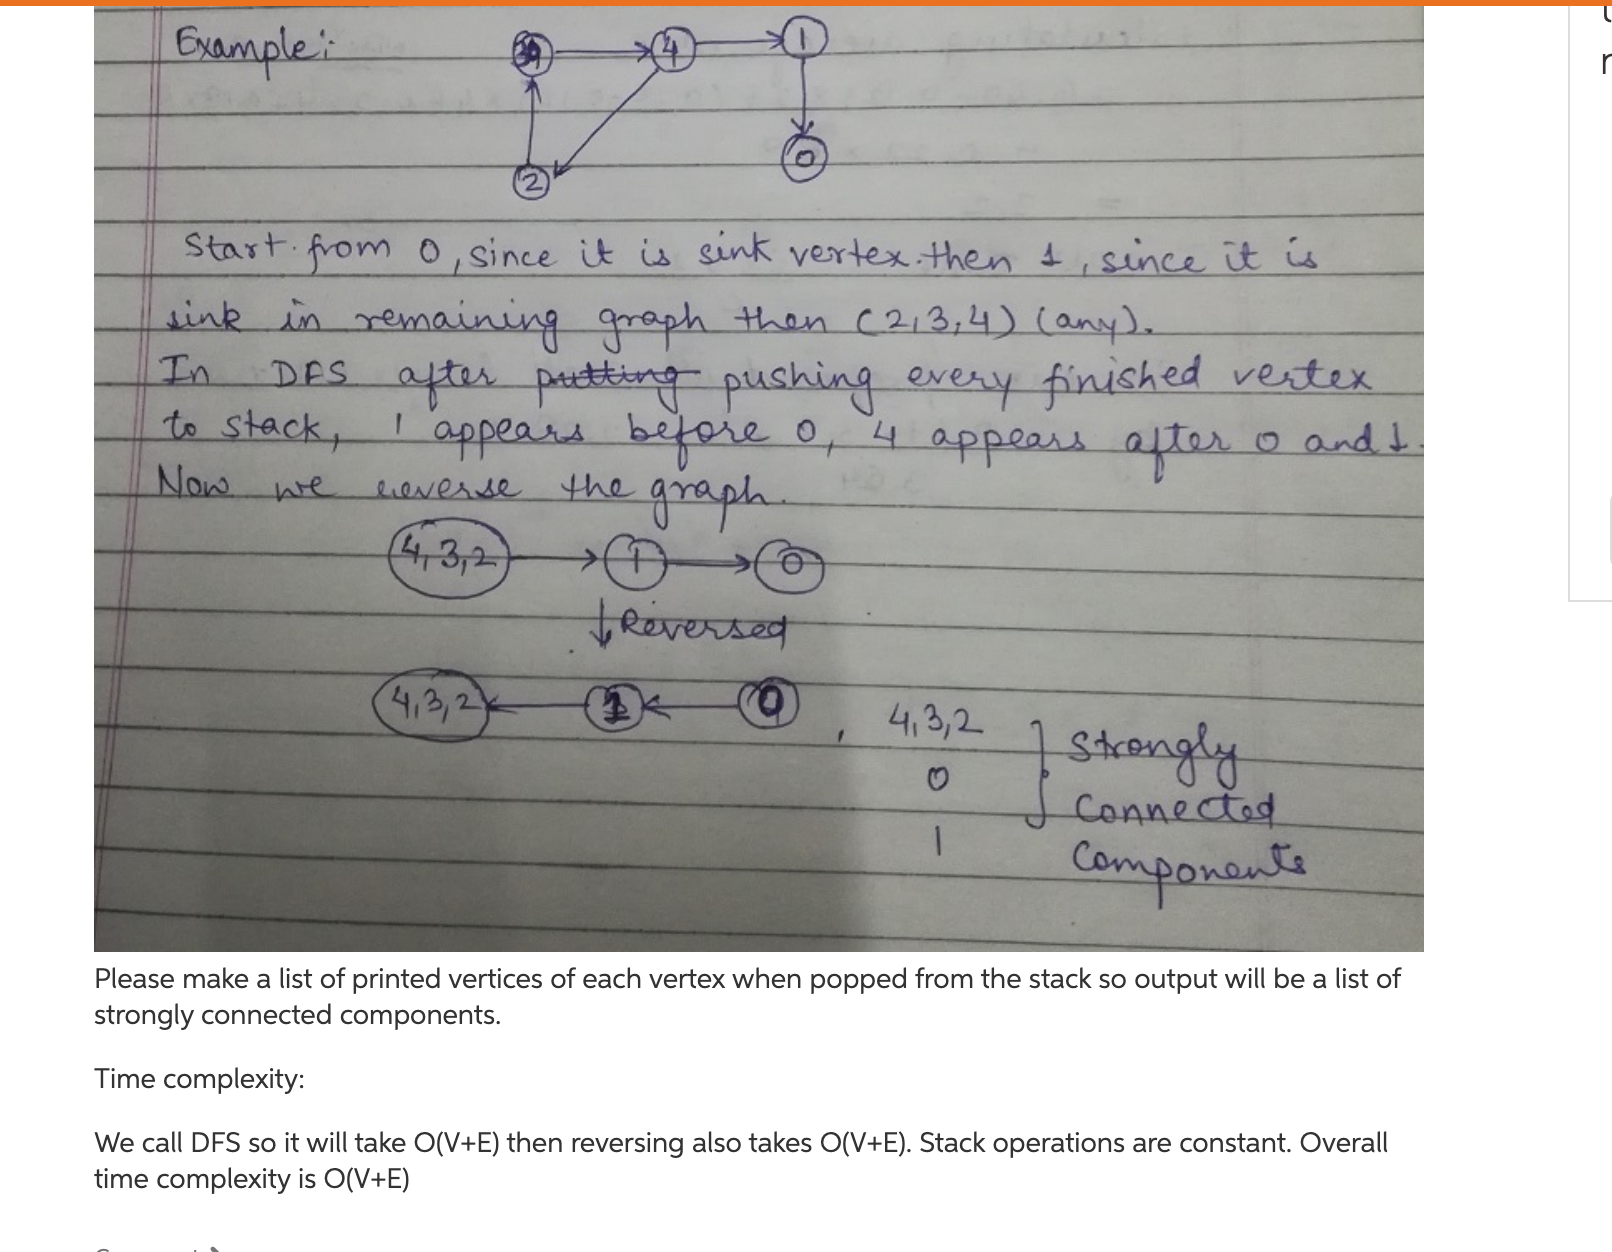 Example:-
4
1
0
2
Start from 0, since it is sink vertex. then 1, since it is
sink in remaining graph then (2,3,4) (any).
In DFS after putting pushing every finished vertex
to stack, 1 appears before 0, 4 appears after 0 and 1.
Now we reverse the graph.
4,3,2
1
0
↓ Reversed
4,3,2
1
0
, 4,3,2
0
1
Strongly
Connected
Components
Please make a list of printed vertices of each vertex when popped from the stack so output will be a list of
strongly connected components.
Time complexity:
We call DFS so it will take O(V+E) then reversing also takes O(V+E). Stack operations are constant. Overall
time complexity is O(V+E)